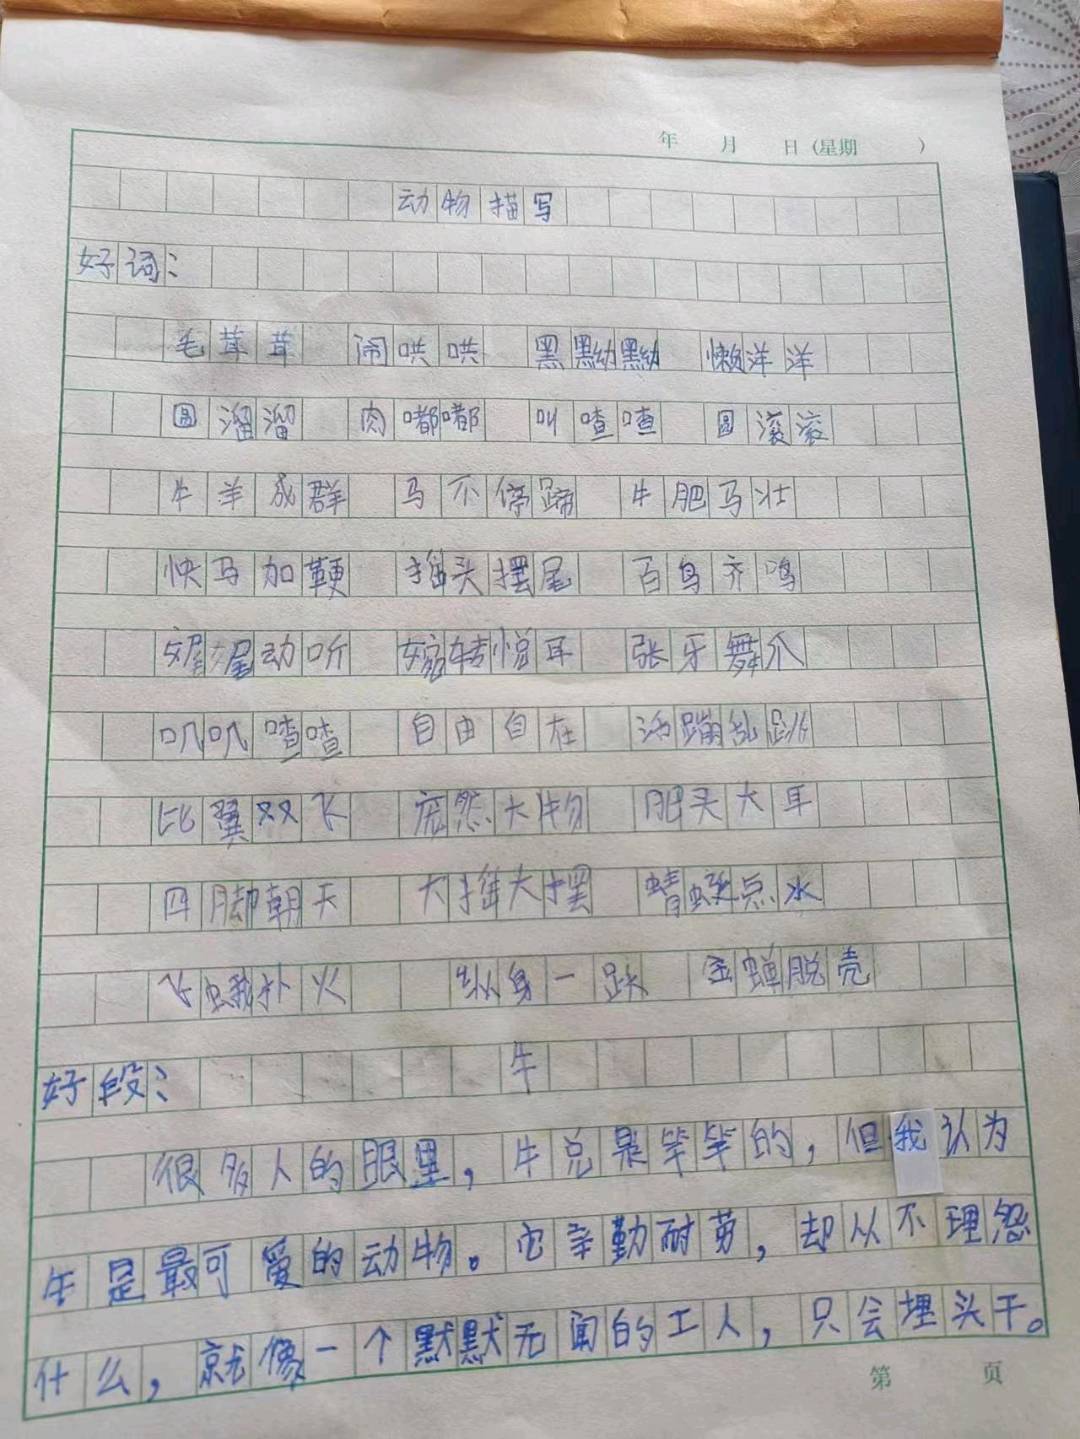 年 月 日（星期 ）
动物描写
好词：
毛茸茸 闹哄哄 黑黝黝 懒洋洋
圆溜溜 肉嘟嘟 叫喳喳 圆滚滚
牛羊成群 马不停蹄 牛肥马壮
快马加鞭 摇头摆尾 百鸟齐鸣
娓娓动听 婉转悦耳 张牙舞爪
叽叽喳喳 自由自在 活蹦乱跳
比翼双飞 庞然大物 肥头大耳
四脚朝天 大摇大摆 蜻蜓点水
飞蛾扑火 纵身一跃 金蝉脱壳
好段： 牛
很多人的眼里，牛总是笨笨的，但我认为
牛是最可爱的动物。它辛勤耐劳，却从不埋怨
什么，就像一个默默无闻的工人，只会埋头干。
第 页